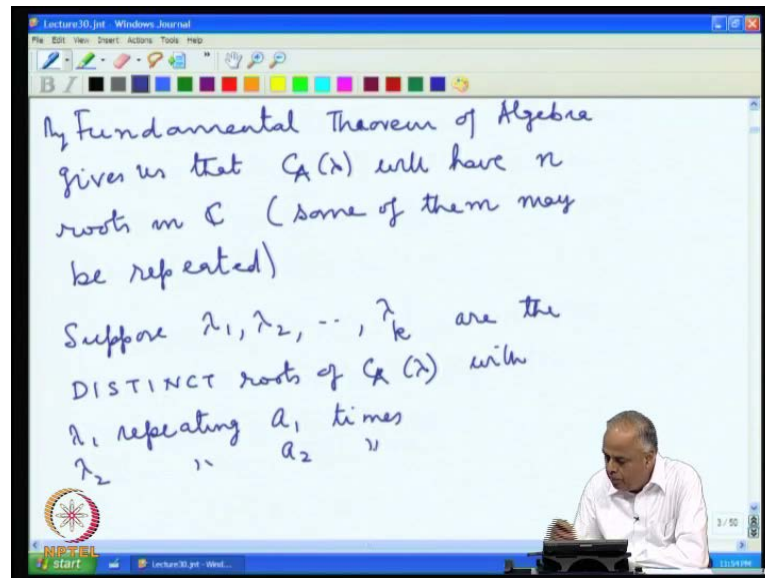 Lecture30.jnt - Windows Journal
File Edit View Insert Actions Tools Help
B I
By Fundamental Theorem of Algebra
gives us that C_A(λ) will have n
roots in ℂ (some of them may
be repeated)
Suppose λ₁, λ₂, ..., λ_k are the
DISTINCT roots of C_A(λ) with
λ₁ repeating a₁ times
λ₂ " a₂ "
3 / 50
NPTEL
start Lecture30.jnt - Wind...
11:54 PM